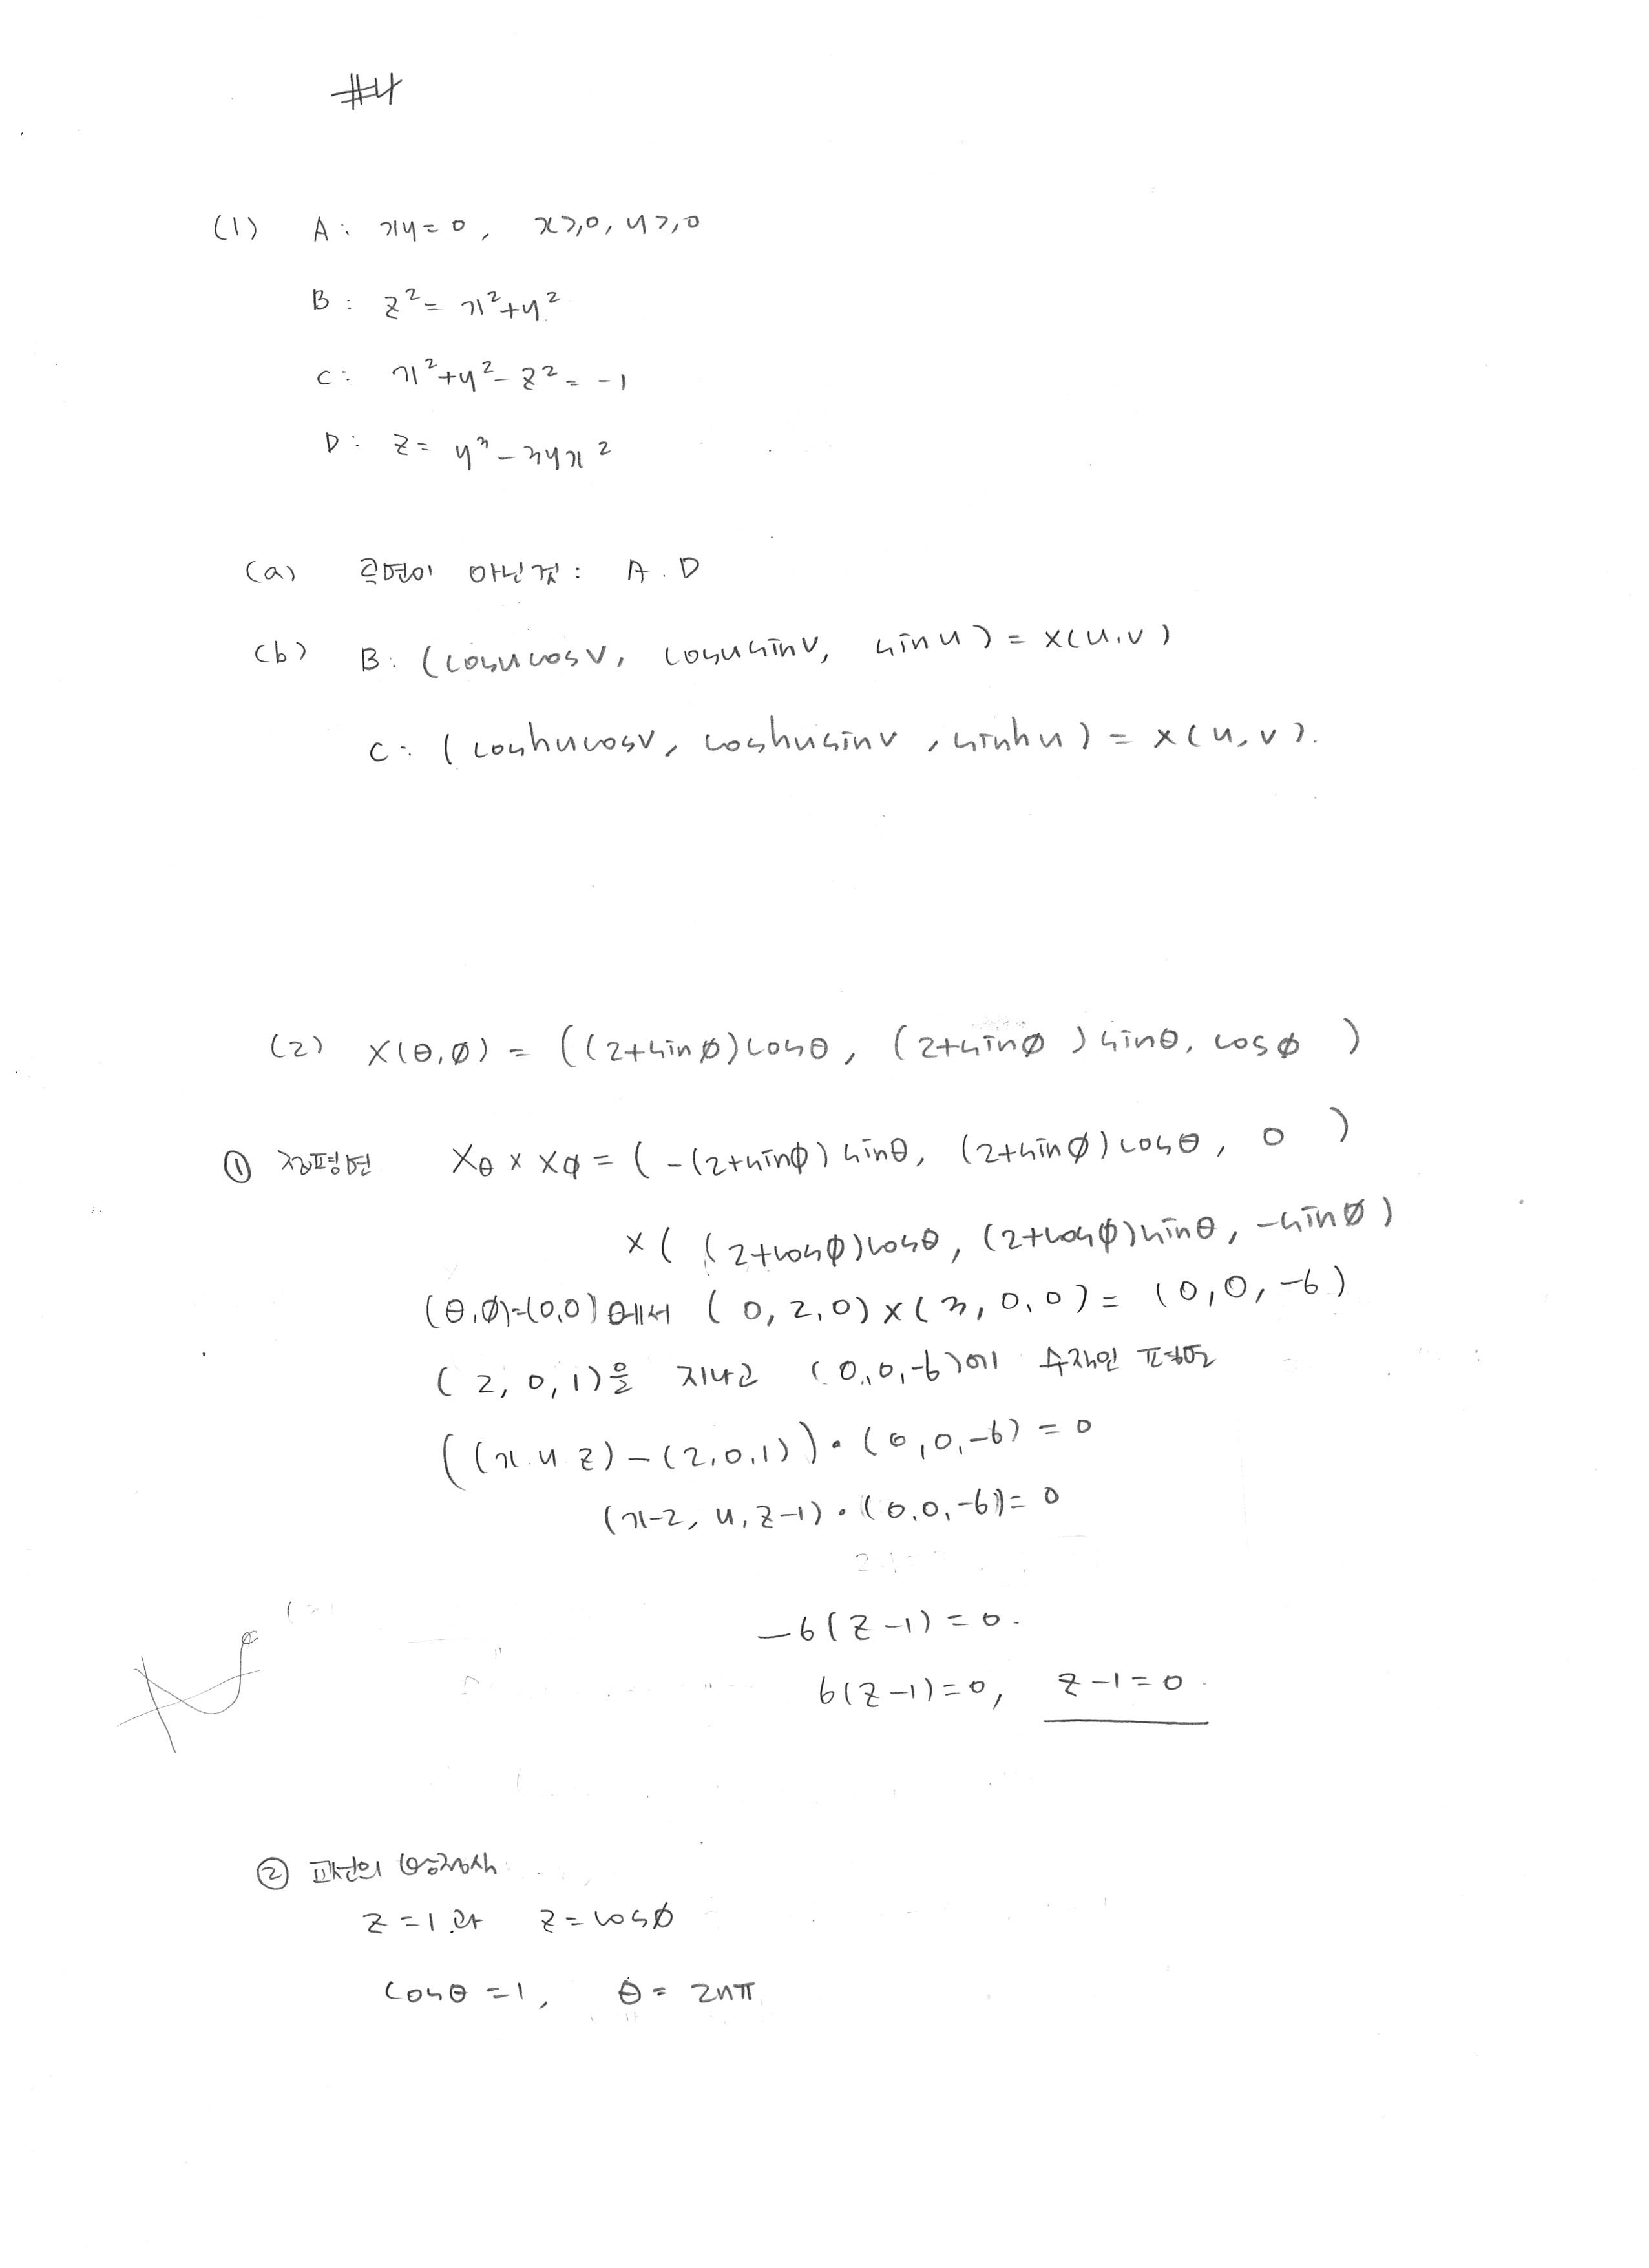 #4
(1) A: xy=0, x≥0, y≥0
B: z²=x²+y²
C: x²+y²-z²=-1
D: z=y³-3yx²
(a) 곡면이 아닌것: A.D
(b) B: (cosucosv, cosusinv, sinu)=x(u,v)
C: (coshucosv, coshusinv, sinhu)=x(u,v).
(2) X(θ,ø)=((2+sinø)cosθ, (2+sinø)sinθ, cosø)
① 접평면 Xθ × Xø=(-(2+sinø)sinθ, (2+sinø)cosθ, 0)
×((2+cosø)cosθ, (2+cosø)sinθ, -sinø)
(θ,ø)=(0,0)에서 (0,2,0)×(3,0,0)=(0,0,-6)
(2,0,1)을 지나고 (0,0,-6)에 수직인 평면
((x y z)-(2,0,1))•(0,0,-6)=0
(x-2, y, z-1)•(0,0,-6)=0
-6(z-1)=0.
6(z-1)=0, z-1=0.
② 교선의
z=1과 z=cosø
cosθ=1, θ=2nπ